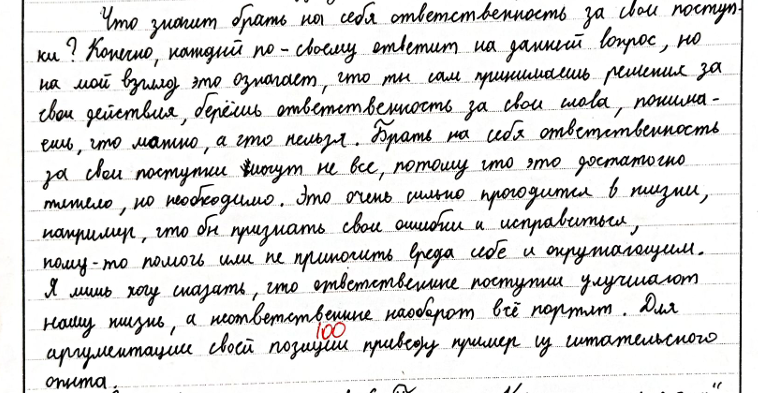 Что значит брать на себя ответственность за свои поступ-
ки? Конечно, каждый по-своему ответит на данный вопрос, но
на мой взгляд это означает, что ты сам принимаешь решения за
свои действия, берёшь ответственность за свои слова, понима-
ешь, что можно, а что нельзя. Брать на себя ответственность
за свои поступки могут не все, потому что это достаточно
тяжело, но необходимо. Это очень сильно пригодится в жизни,
например, что бы признать свои ошибки и исправиться,
кому-то помочь или не приносить вреда себе и окружающим.
Я лишь хочу сказать, что ответственные поступки улучшают
нашу жизнь, а неответственные наоборот всё портят. Для
100
аргументации своей позиции приведу пример из читательского
опыта.